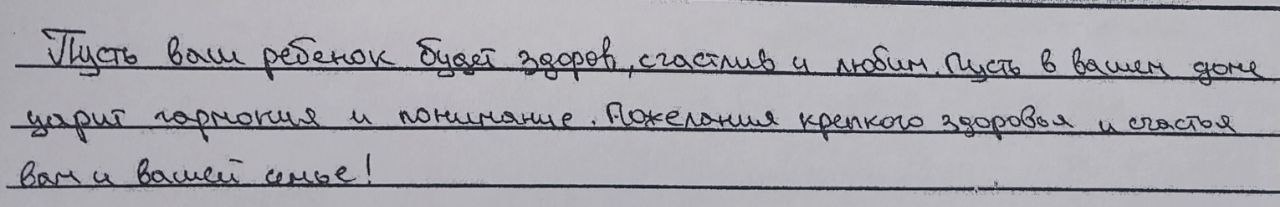 Пусть ваш ребенок будет здоров, счастлив и любим. Пусть в вашем доме
царит гармония и понимание. Пожелания крепкого здоровья и счастья
вам и вашей семье!